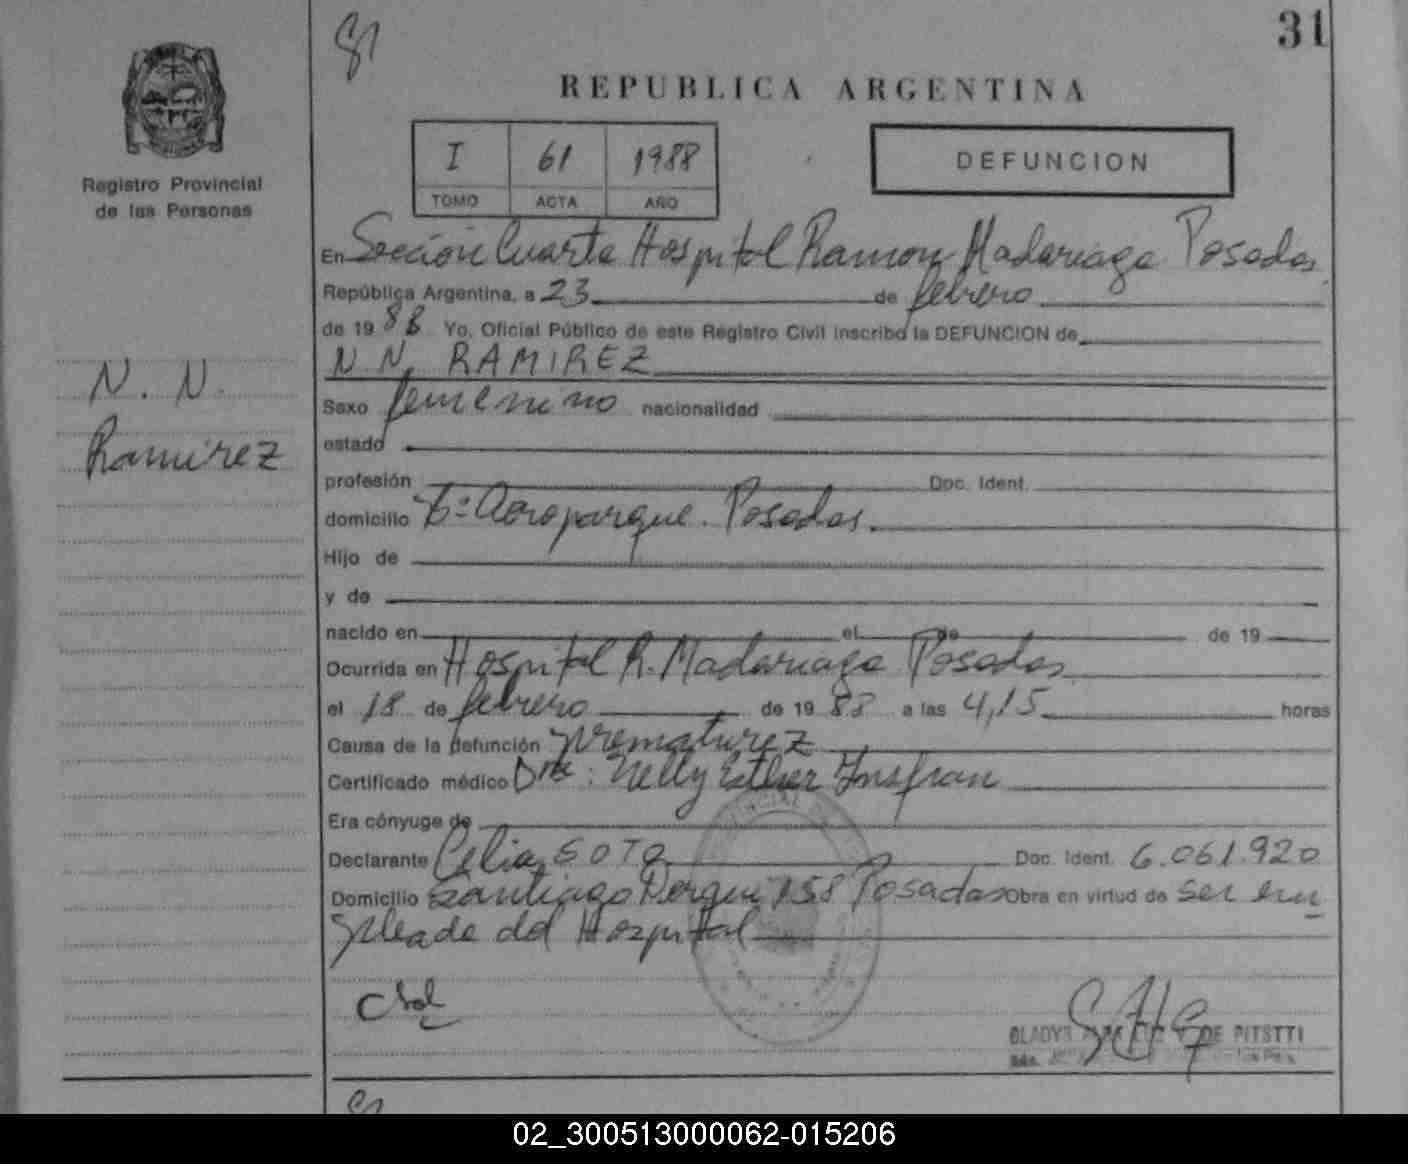 81
31
REPUBLICA ARGENTINA
Registro Provincial
de las Personas
I 61 1988
TOMO ACTA AÑO
DEFUNCION
En Sección Cuarta Hospital Ramon Madariaga Posadas
República Argentina, a 23 de febrero
de 19 88 Yo, Oficial Público de este Registro Civil inscribo la DEFUNCION de
N.N. RAMIREZ
N. N.
Ramirez
Sexo femenino nacionalidad
estado
profesión Doc. Ident.
domicilio Bº Aeroparque. Posadas.
Hijo de
y de
nacido en el de de 19
Ocurrida en Hospital R. Madariaga Posadas
el 18 de febrero de 19 88 a las 4,15 horas
Causa de la defunción prematurez
Certificado médico Dra: Nelly Esther Insfran
Era cónyuge de
Declarante Celia SOTO Doc. Ident. 6.061.920
Domicilio Santiago Derqui 158 Posadas Obra en virtud de ser em
pleada del Hospital
GLADYS DE PITSTTI
02_300513000062-015206